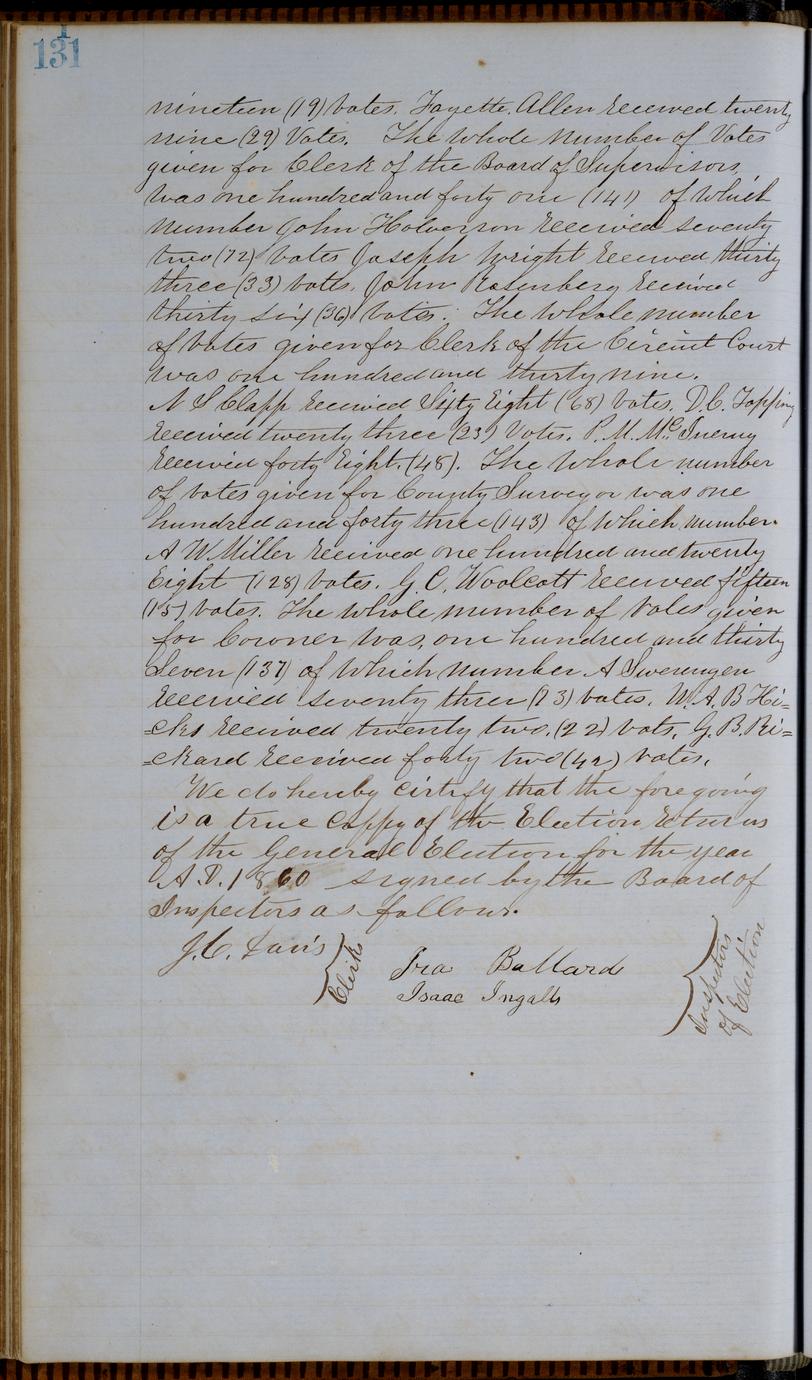 1
131
nineteen (19) votes. Fayette. Allen Received twenty
nine (29) Votes. The whole number of Votes
given for Clerk of the Board of Supervisors,
was one hundred and forty one (141) of which
number John Holverson Received seventy
two (72) votes Joseph Wright Received thirty
three (33) votes. John Rosenberg Received
thirty six (36) Votes. The whole number
of votes given for Clerk of the Circuit Court
was one hundred and thirty nine.
N S Clapp Received Sixty Eight (68) votes. D. C. Topping
Received twenty three (23) Votes. P. M. Mc
Received forty Eight. (48). The whole number
of votes given for County Surveyor was one
hundred and forty three (143) of which number
A W Miller Received one hundred and twenty
Eight (128) votes. G. C. Woolcott Received fifteen
(15) votes. The whole number of votes given
for Coroner was, one hundred and thirty
Seven (137) of which number A Swerengen
Received seventy three (73) votes. W. A. B Hi=
=cks Received twenty two. (22) vots, G. B. Ri=
=ckard Received forty two (42) votes.
We do hereby certify that the foregoing
is a true Coppy of the Election Returns
of the General Election for the year
A. D. 1860 signed by the Board of
Inspectors as follows.
J. C. Davis } Clerks Ira Ballard } Inspectors
Isaac Ingalls of Election